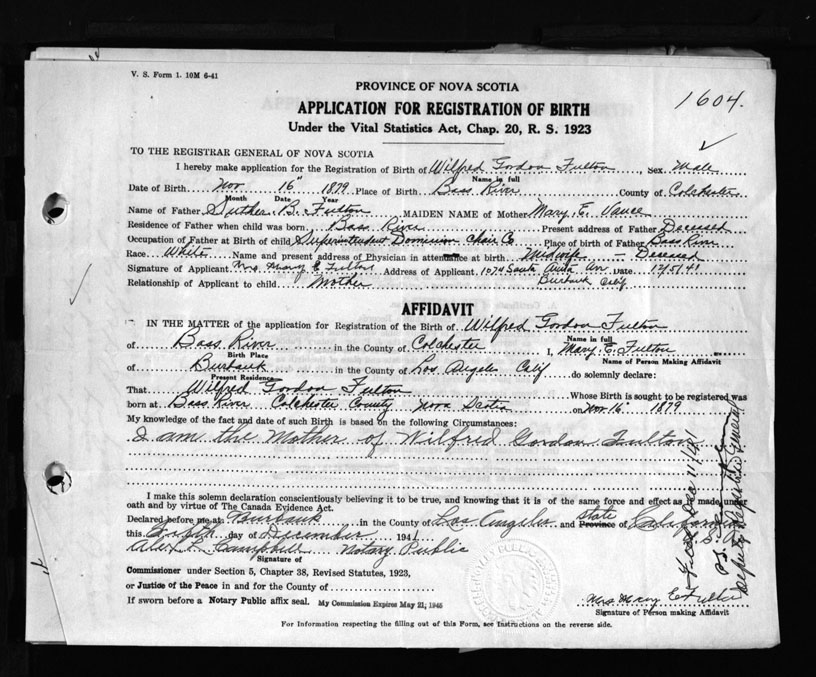 V. S. Form 1. 10M 6-41
PROVINCE OF NOVA SCOTIA
1604.
APPLICATION FOR REGISTRATION OF BIRTH
Under the Vital Statistics Act, Chap. 20, R. S. 1923
TO THE REGISTRAR GENERAL OF NOVA SCOTIA
I hereby make application for the Registration of Birth of Wilfred Gordon Fulton, Sex Male
Name in full
Date of Birth Nov. 16" 1879 Place of Birth Bass River County of Colchester
Month Date Year
Name of Father Luther B. Fulton MAIDEN NAME of Mother Mary E. Vance
Residence of Father when child was born. Bass River Present address of Father Deceased
Occupation of Father at Birth of child Superintendent Dominion Chair Co Place of birth of Father Bass River
Race White Name and present address of Physician in attendance at birth Midwife - Deceased
Signature of Applicant Mrs. Mary E Fulton Address of Applicant 1074 South Ave Date 12/5/41
Relationship of Applicant to child Mother Burbank Calif
AFFIDAVIT
IN THE MATTER of the application for Registration of the Birth of Wilfred Gordon Fulton
Name in full
of Bass River in the County of Colchester I, Mary E. Fulton
Birth Place Name of Person Making Affidavit
of Burbank in the County of Los Angeles Calif do solemnly declare:
Present Residence
That Wilfred Gordon Fulton Whose Birth is sought to be registered was
born at Bass River Colchester County Nova Scotia on Nov 16" 1879
My knowledge of the fact and date of such Birth is based on the following Circumstances:
I am the Mother of Wilfred Gordon Fulton
I make this solemn declaration conscientiously believing it to be true, and knowing that it is of the same force and effect as if made under
oath and by virtue of The Canada Evidence Act.
Declared before me at Burbank in the County of Los Angeles and State Province of California
this Fifth day of December 1941
Alex L. Campbell Notary Public
Signature of
Commissioner under Section 5, Chapter 38, Revised Statutes, 1923,
or Justice of the Peace in and for the County of
If sworn before a Notary Public affix seal. My Commission Expires May 21, 1945
Mrs Mary E Fulton
Signature of Person making Affidavit
For Information respecting the filling out of this Form, see Instructions on the reverse side.
Filed Dec 11/41
Deputy Registrar General